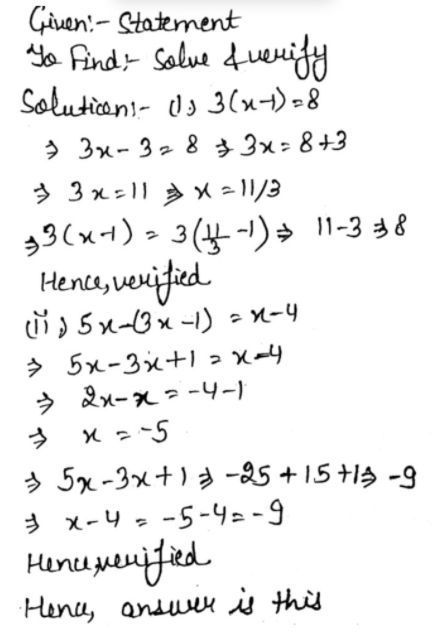 Given:- Statement
To Find:- Solve & verify
Solution:- (i) 3(x-1)=8
⇒ 3x-3=8 ⇒ 3x=8+3
⇒ 3x=11 ⇒ x=11/3
⇒3(x-1) = 3(11/3 -1)⇒ 11-3 ⇒8
Hence, verified
(ii) 5x-(3x-1) = x-4
⇒ 5x-3x+1 = x-4
⇒ 2x-x = -4-1
⇒ x = -5
⇒ 5x-3x+1 ⇒ -25+15+1⇒ -9
⇒ x-4 = -5-4=-9
Hence, verified
Hence, answer is this